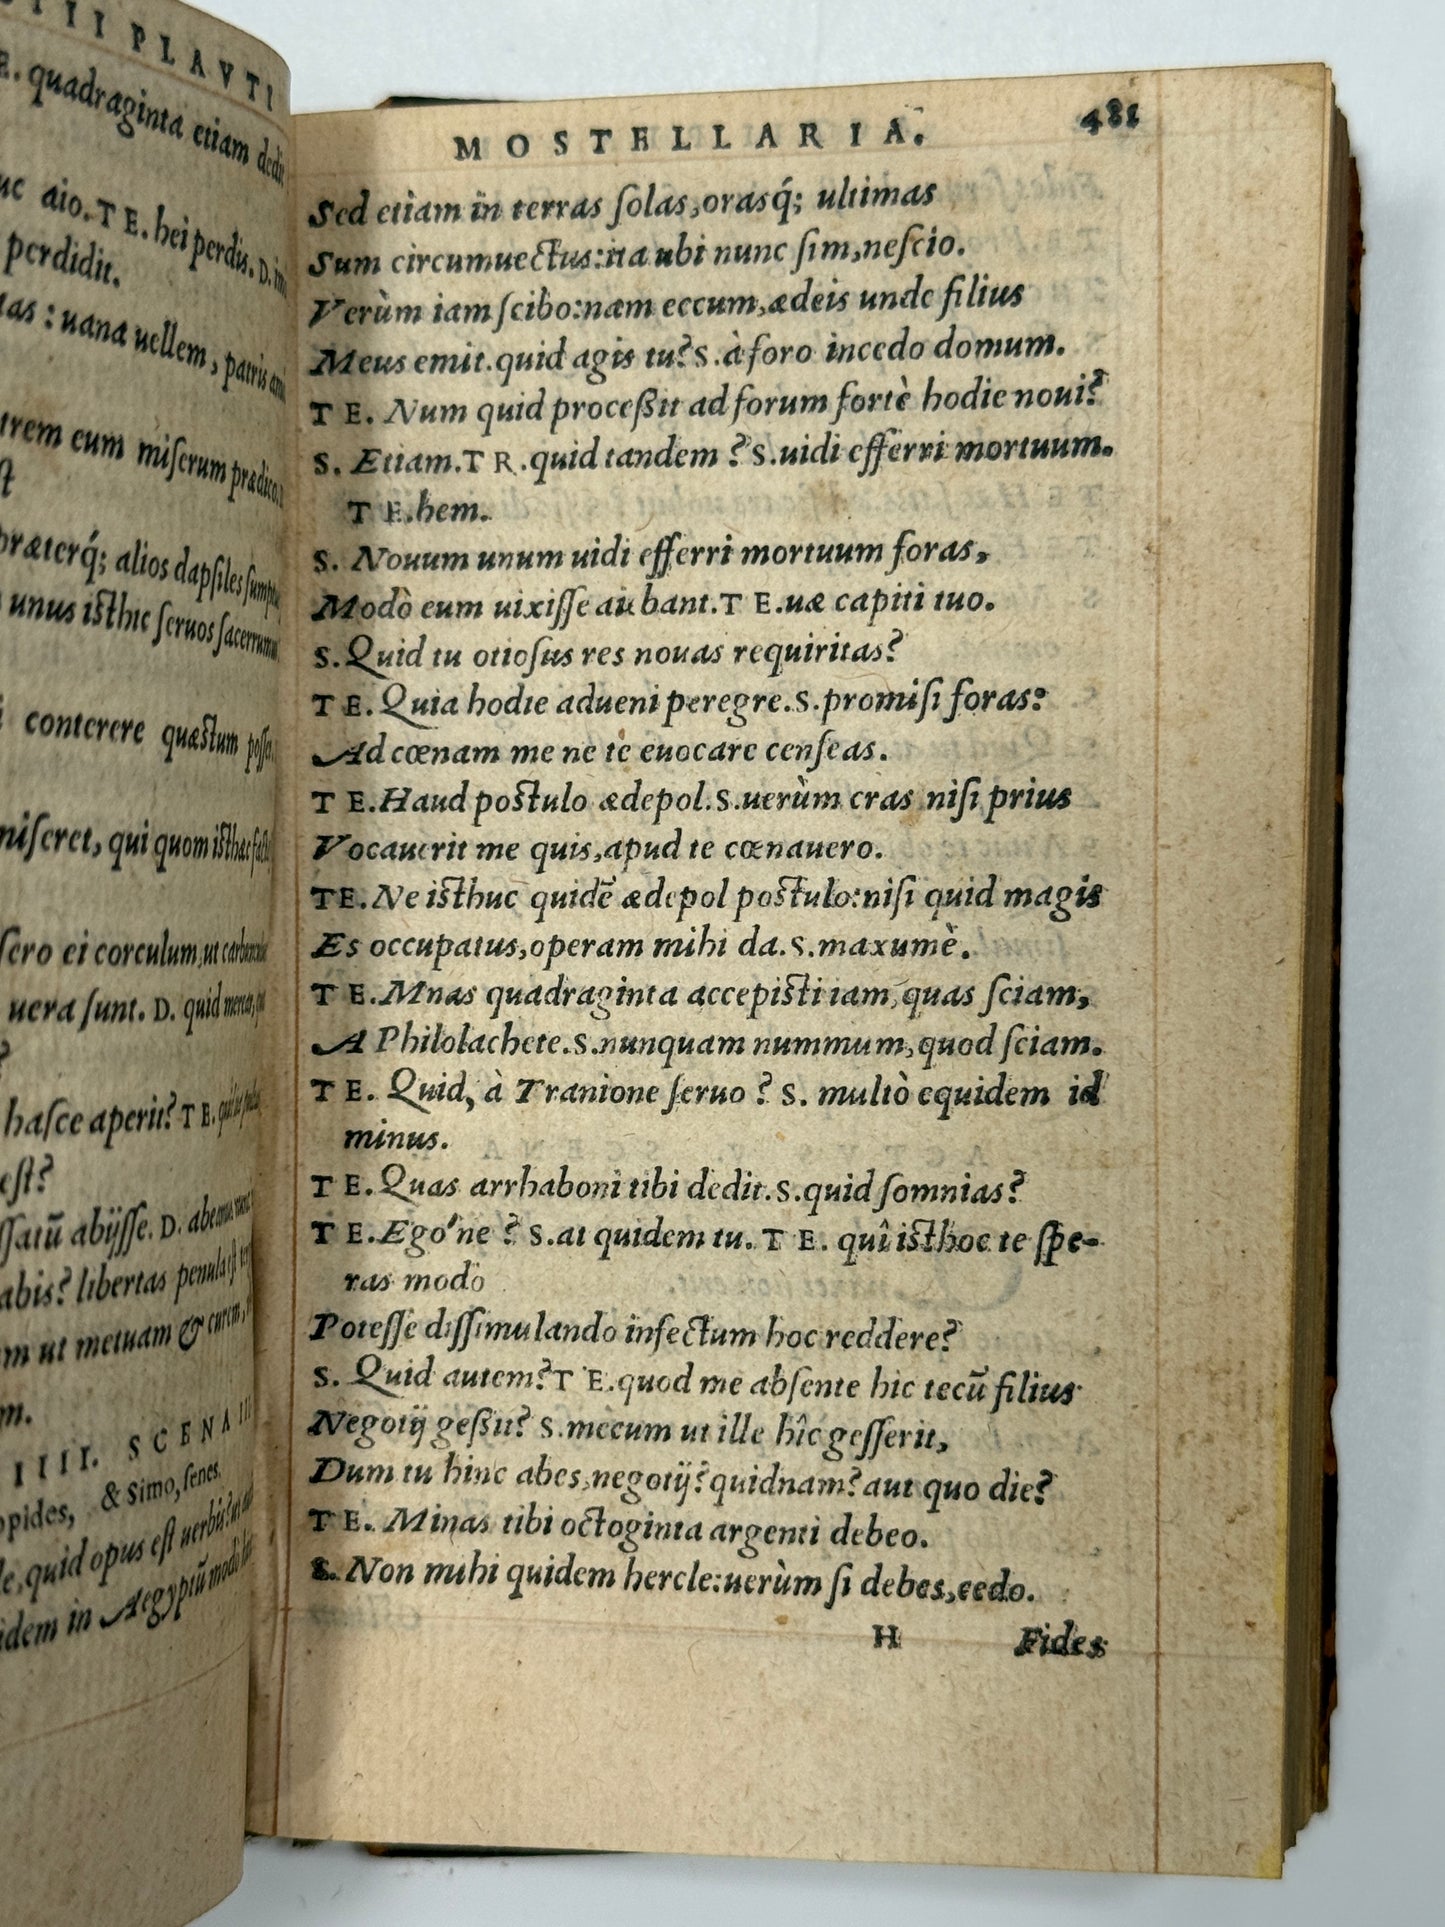 TII PLAVTI
E. quadraginta etiam dedit
uc aio. T E. hei perdis. D. in
perdidit.
tas : uana uellem, patris ami
trem eum miſerum prædico.
ſt
præterq́; alios dapſiles ſumptus
unus iſthic ſeruos ſacerrumus
conterere quæſtum poſſe.
miſeret, qui quom iſthæc
ſero ei corculum, ut carbunculus
uera ſunt. D. quid
?
haſce aperit? T E.
eſt?
ſſatū abijſſe. D.
abis? libertas penula eſt
m ut metuam & curem,
m.
IIII. SCENA III
opides, & Simo, ſenes.
le, quid opus eſt uerbis?
idem in Aegyptū modo
MOSTELLARIA. 481
Sed etiam in terras ſolas, orasq́; ultimas
Sum circumuectus: ita ubi nunc ſim, neſcio.
Verùm iam ſcibo: nam eccum, ædeis unde filius
Meus emit. quid agis tu? S. à foro incedo domum.
T E. Num quid proceßit ad forum fortè hodie noui?
S. Etiam. T R. quid tandem ? S. uidi efferri mortuum.
T E. hem.
S. Nouum unum uidi efferri mortuum foras,
Modò eum uixiſſe aiebant. T E. uæ capiti tuo.
S. Quid tu otioſus res nouas requiritas?
T E. Quia hodie adueni peregre. S. promiſi foras:
Ad cœnam me ne te euocare cenſeas.
T E. Haud poſtulo ædepol. S. uerùm cras niſi prius
Vocauerit me quis, apud te cœnauero.
TE. Ne iſthuc quidē ædepol poſtulo: niſi quid magis
Es occupatus, operam mihi da. S. maxumè.
T E. Mnas quadraginta accepiſti iam, quas ſciam,
A Philolachete. S. nunquam nummum, quod ſciam.
T E. Quid, à Tranione ſeruo ? S. multò equidem id
minus.
T E. Quas arrhaboni tibi dedit. S. quid ſomnias?
T E. Ego'ne ? S. at quidem tu. T E. quî iſthoc te ſpe-
ras modo
Poteſſe diſſimulando infectum hoc reddere?
S. Quid autem? T E. quod me abſente hic tecū filius
Negotij geßit? S. mecum ut ille hîc geſſerit,
Dum tu hinc abes, negotij? quidnam? aut quo die?
T E. Minas tibi octoginta argenti debeo.
S. Non mihi quidem hercle: uerùm ſi debes, cedo.
H Fides